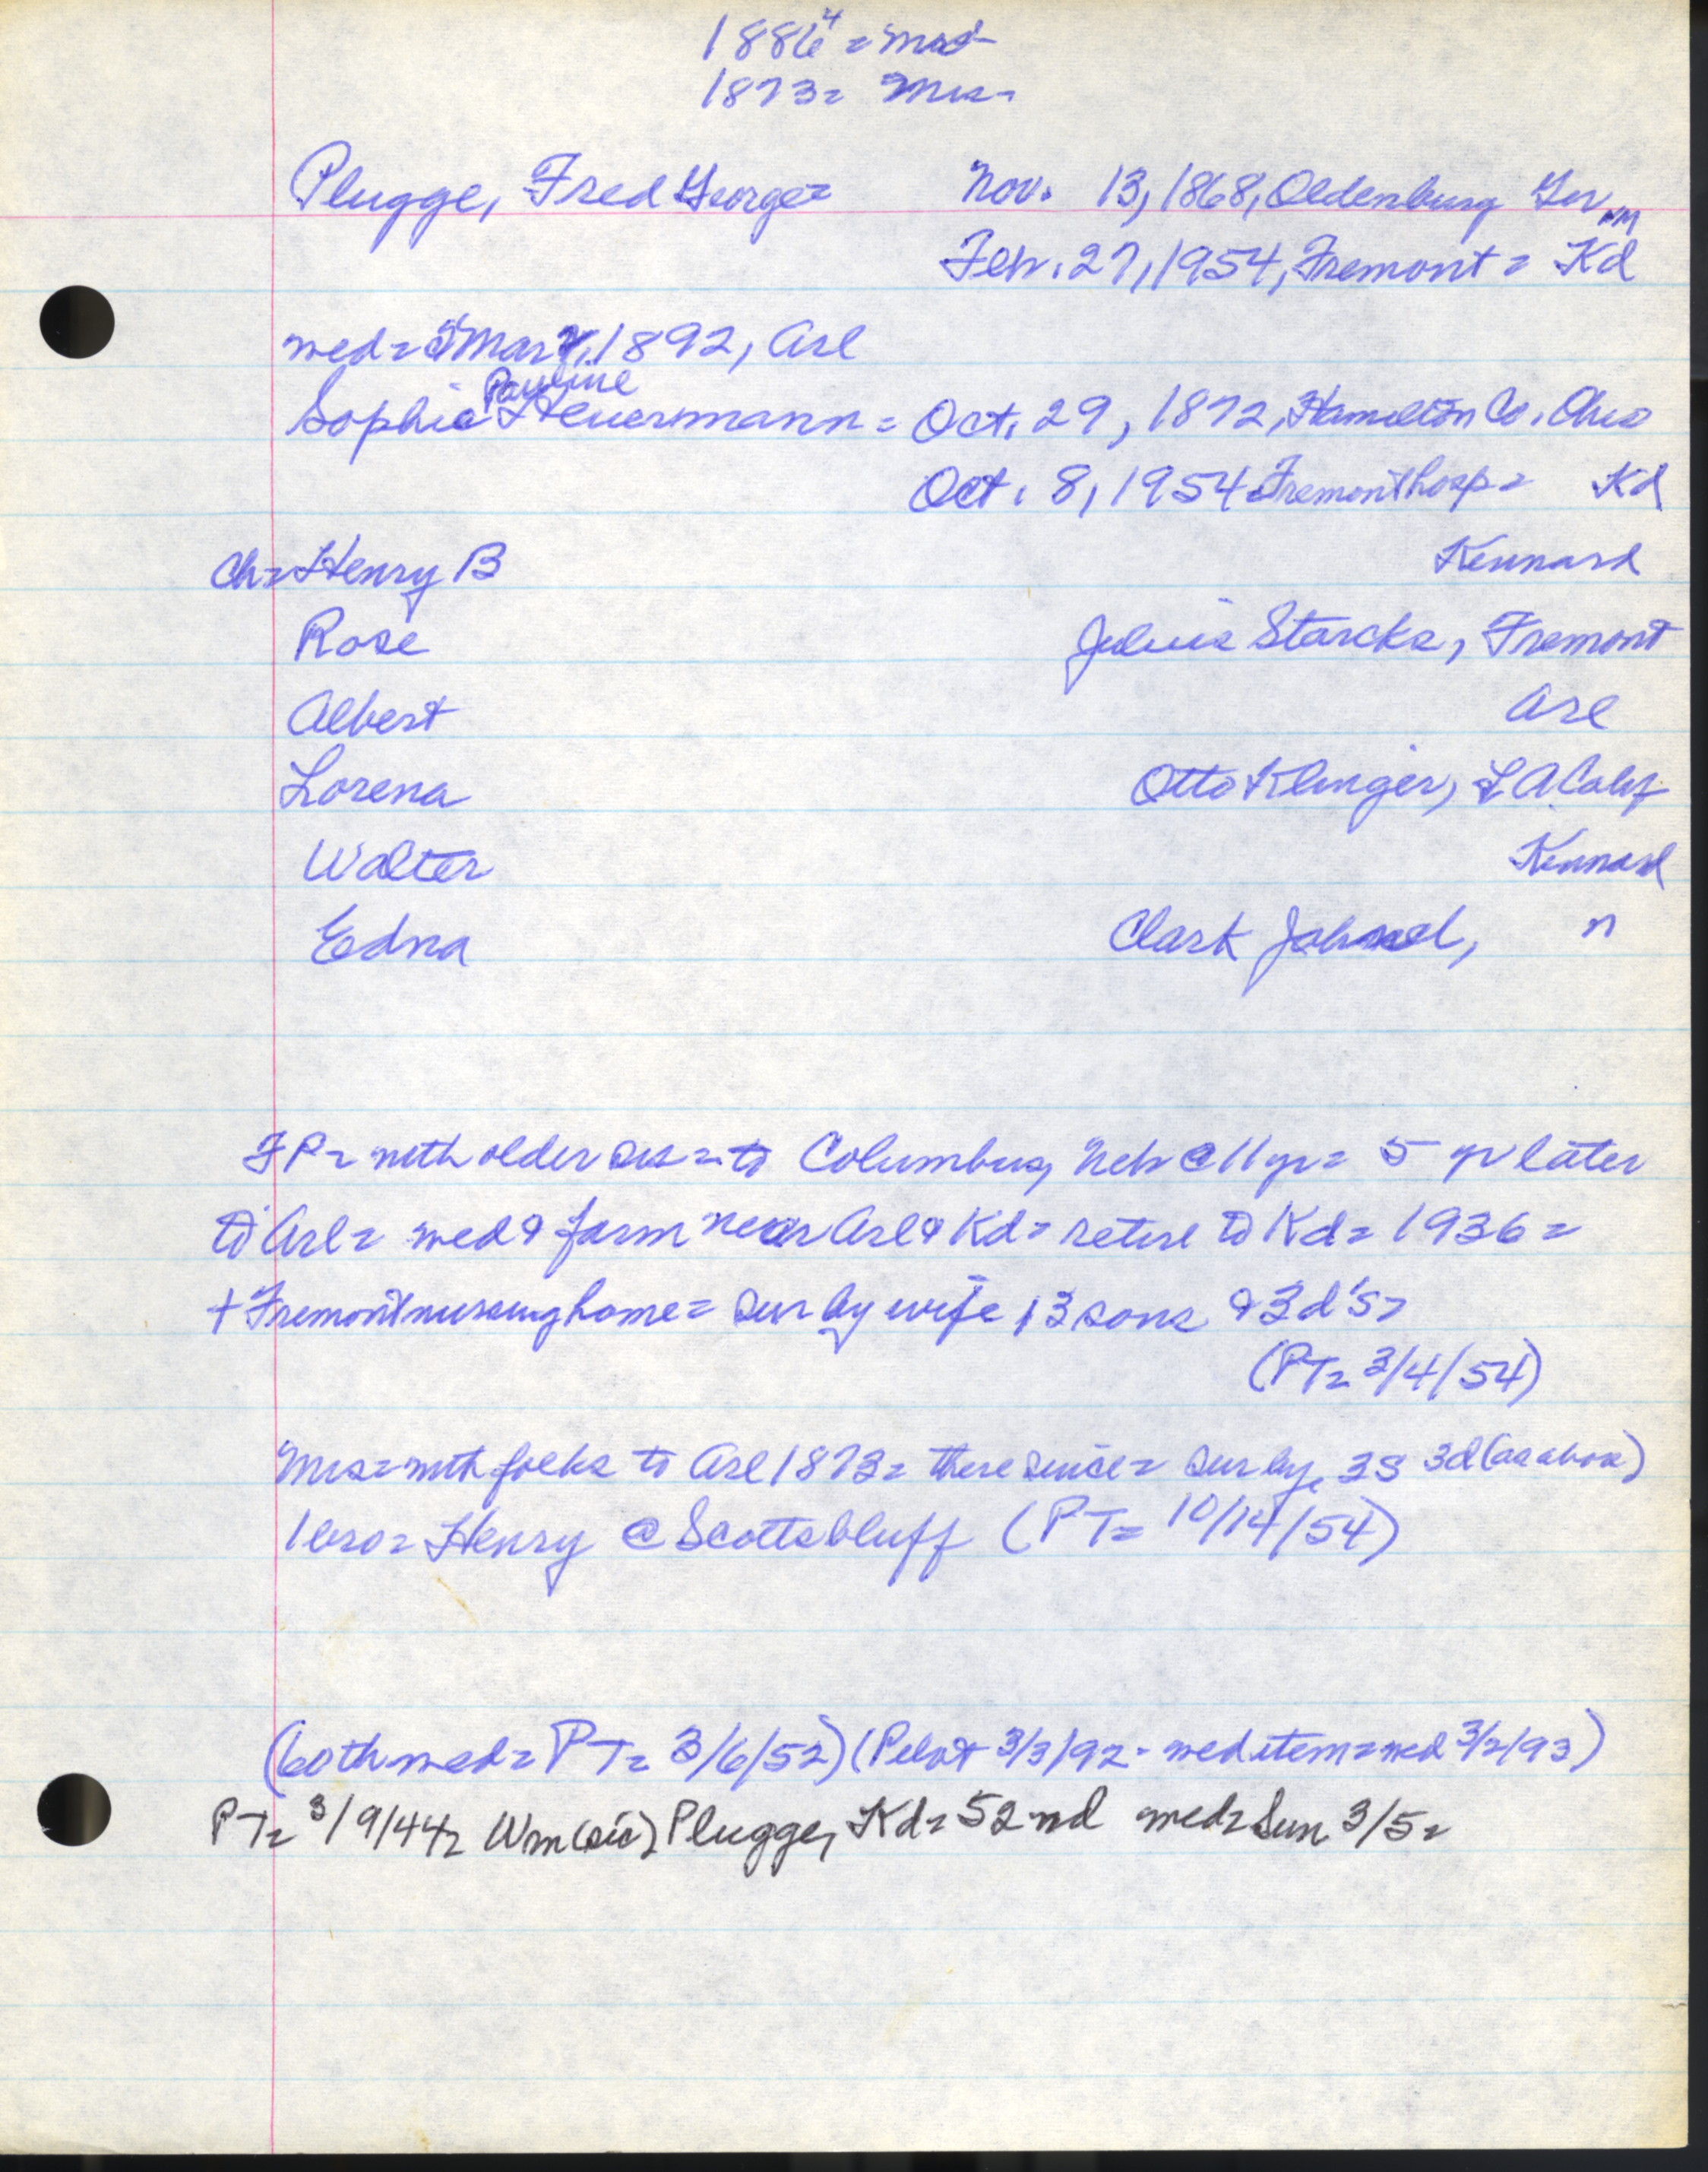 1886 4 =
1873= Mrs=
Plugge, Fred George= Nov. 13, 1868, Oldenburg Ger
Feb. 27, 1954, Fremont = Kd
med= Mar 1892, Arl
Pauline
Sophie Heuermann = Oct. 29, 1872, Hamilton Co. Ohio
Oct. 8, 1954 Fremont hosp = Kd
Ch= Henry B Kennard
Rose Julius Starcks, Fremont
Albert Arl
Lorena Otto Klinger, L A Calif
Walter Kennard
Edna Clark " 
FP= with older sis = to Columbus, Neb @ 11 yr = 5 yr later
to Arl = med & farm near Arl & Kd = retire to Kd = 1936 =
+ Fremont nursing home = sur by wife, 3 sons & 3 d's =
(PT= 3/4/54)
Mrs= with folks to Arl 1873 = there since = sur by, 3S 3d (as above)
1 bro = Henry @ Scottsbluff (PT= 10/14/54)
(60th med = PT= 3/6/52) (Pilot 3/3/92 - med item = med 3/2/93)
PT= 3/9/44= Wm (sic) Plugge, Kd = 52nd med = Sun 3/5=